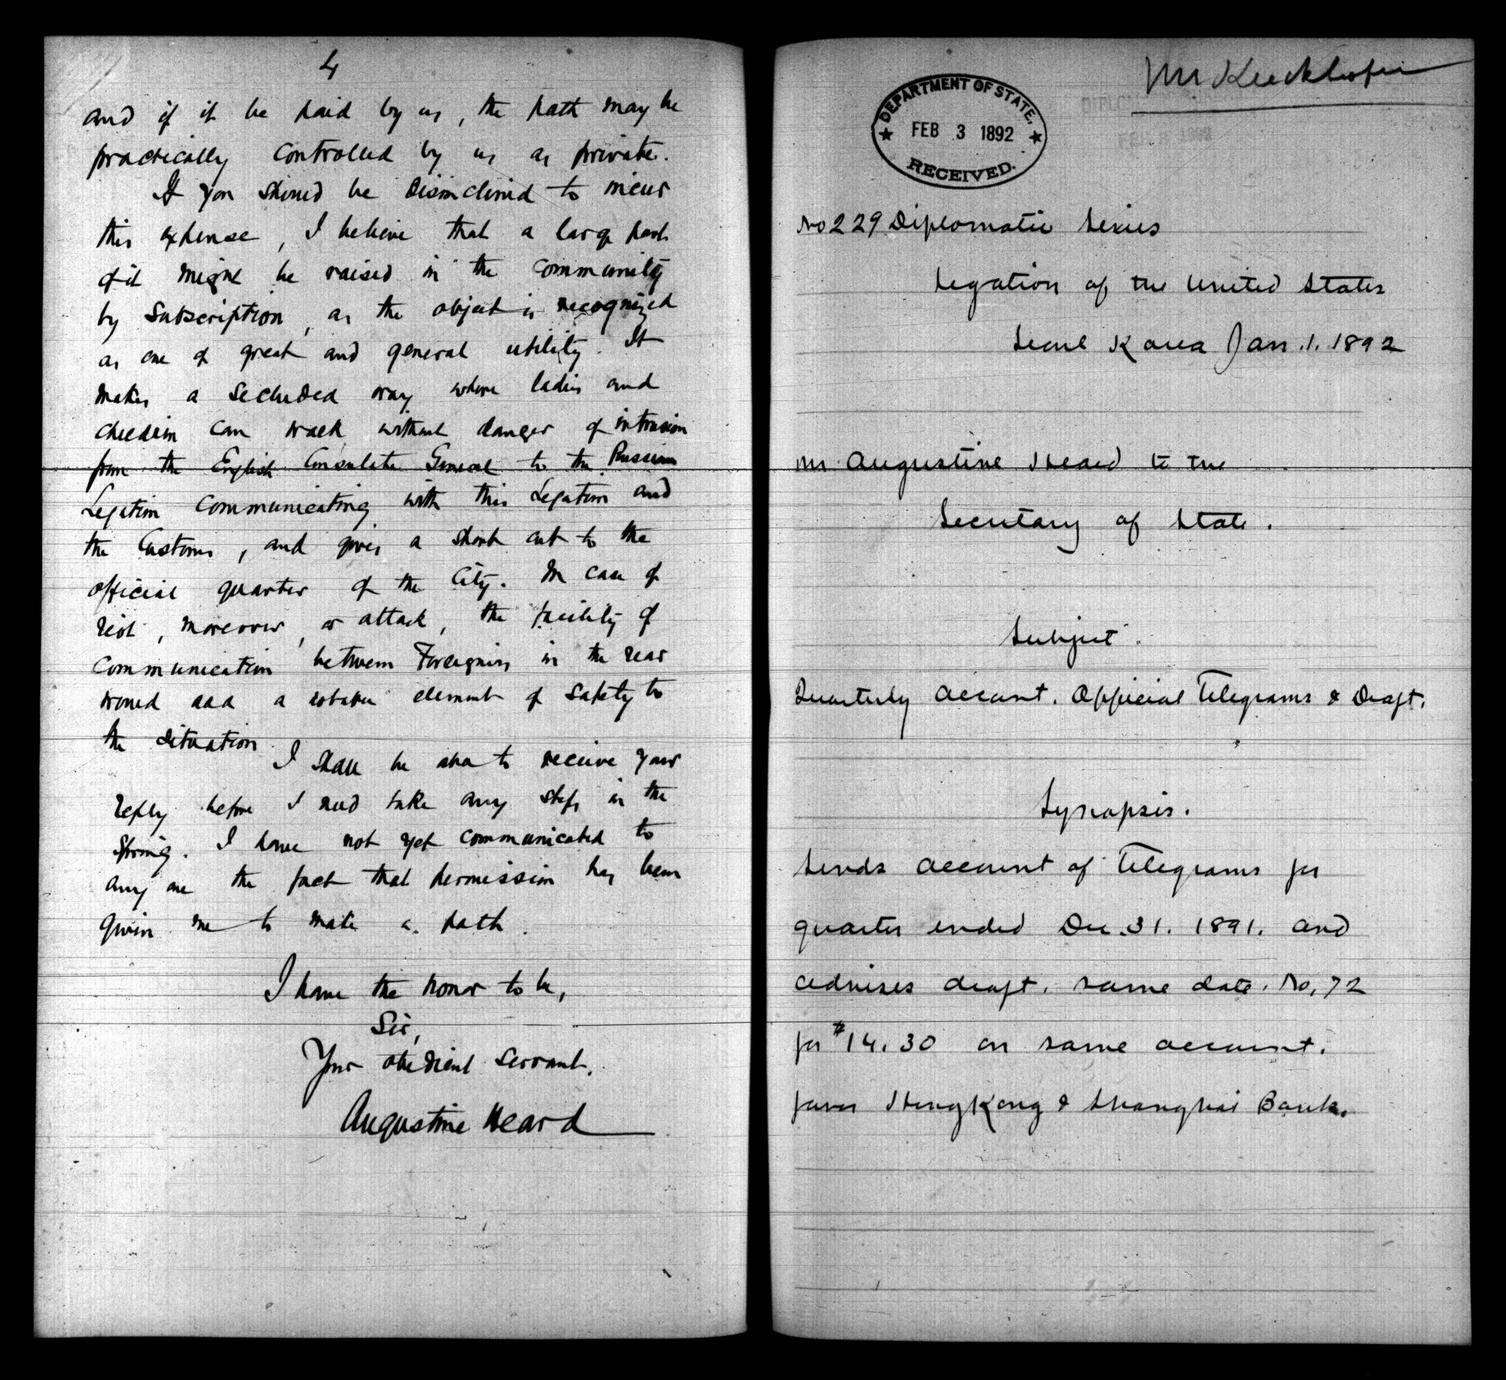 4
and if it be paid by us, the path may be
practically controlled by us as private.
If you should be disinclined to incur
this expense, I believe that a large part
of it might be raised in the community
by subscription, as the object is recognized
as one of great and general utility. It
makes a secluded way where ladies and
children can walk without danger of intrusion
from the English Consulate General to the Russian
Legation communicating with this Legation and
the Customs, and gives a short cut to the
official quarter of the City. In case of
riot, moreover, or attack, the facility of
communication between Foreigners in the rear
would add a notable element of safety to
the situation.
I shall be able to receive your
reply before I need take any steps in the
Spring. I have not yet communicated to
any one the fact that permission has been
given me to make a path.
I have the honor to be,
Sir,
Your obedient servant.
Augustine Heard
Mr Kieckhoefer
DEPARTMENT OF STATE,
FEB 3 1892
RECEIVED.
No 229 Diplomatic Series
Legation of the United States
Seoul Korea Jan. 1. 1892
Mr Augustine Heard to the
Secretary of State.
Subject.
Quarterly Account. Official Telegrams & Draft.
Synopsis.
Sends account of Telegrams for
quarter ended Dec. 31. 1891. and
advises draft, same date. No, 72
for $14.30 on same account.
favor HongKong & Shanghai Bank.